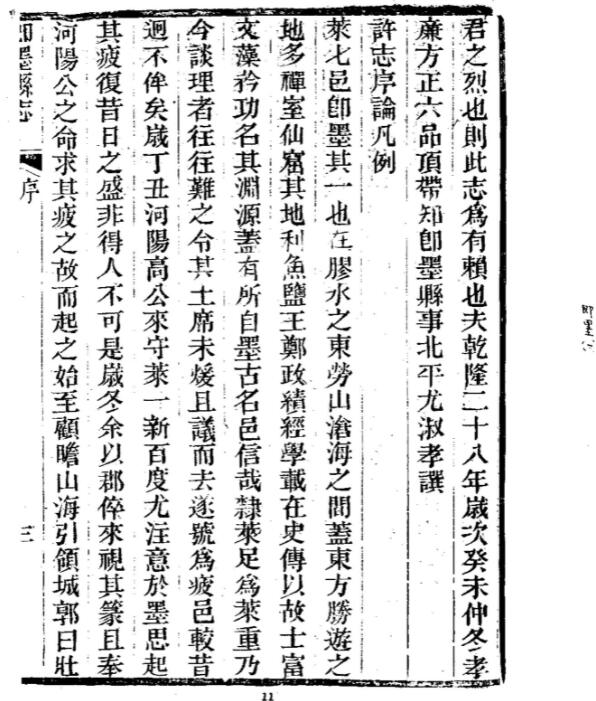 君之烈也則此志爲有賴也夫乾隆二十八年歲次癸未仲冬孝
廉方正六品頂帶知卽墨縣事北平尤淑孝譔
許志序論凡例
萊七邑卽墨其一也在膠水之東勞山滄海之間蓋東方勝遊之
地多禪室仙窟其地利魚鹽王鄭政績經學載在史傳以故士富
文藻矜功名其淵源蓋有所自墨古名邑信哉隸萊足爲萊重乃
今談理者往往難之令其土席未煖且議而去遂號爲疲邑較昔
迥不侔矣歲丁丑河陽高公來守萊一新百度尤注意於墨思起
其疲復昔日之盛非得人不可是歲冬余以郡倅來視其篆且奉
河陽公之命求其疲之故而起之始至顧瞻山海引領城郭曰壯
卽墨縣志
序
三
11